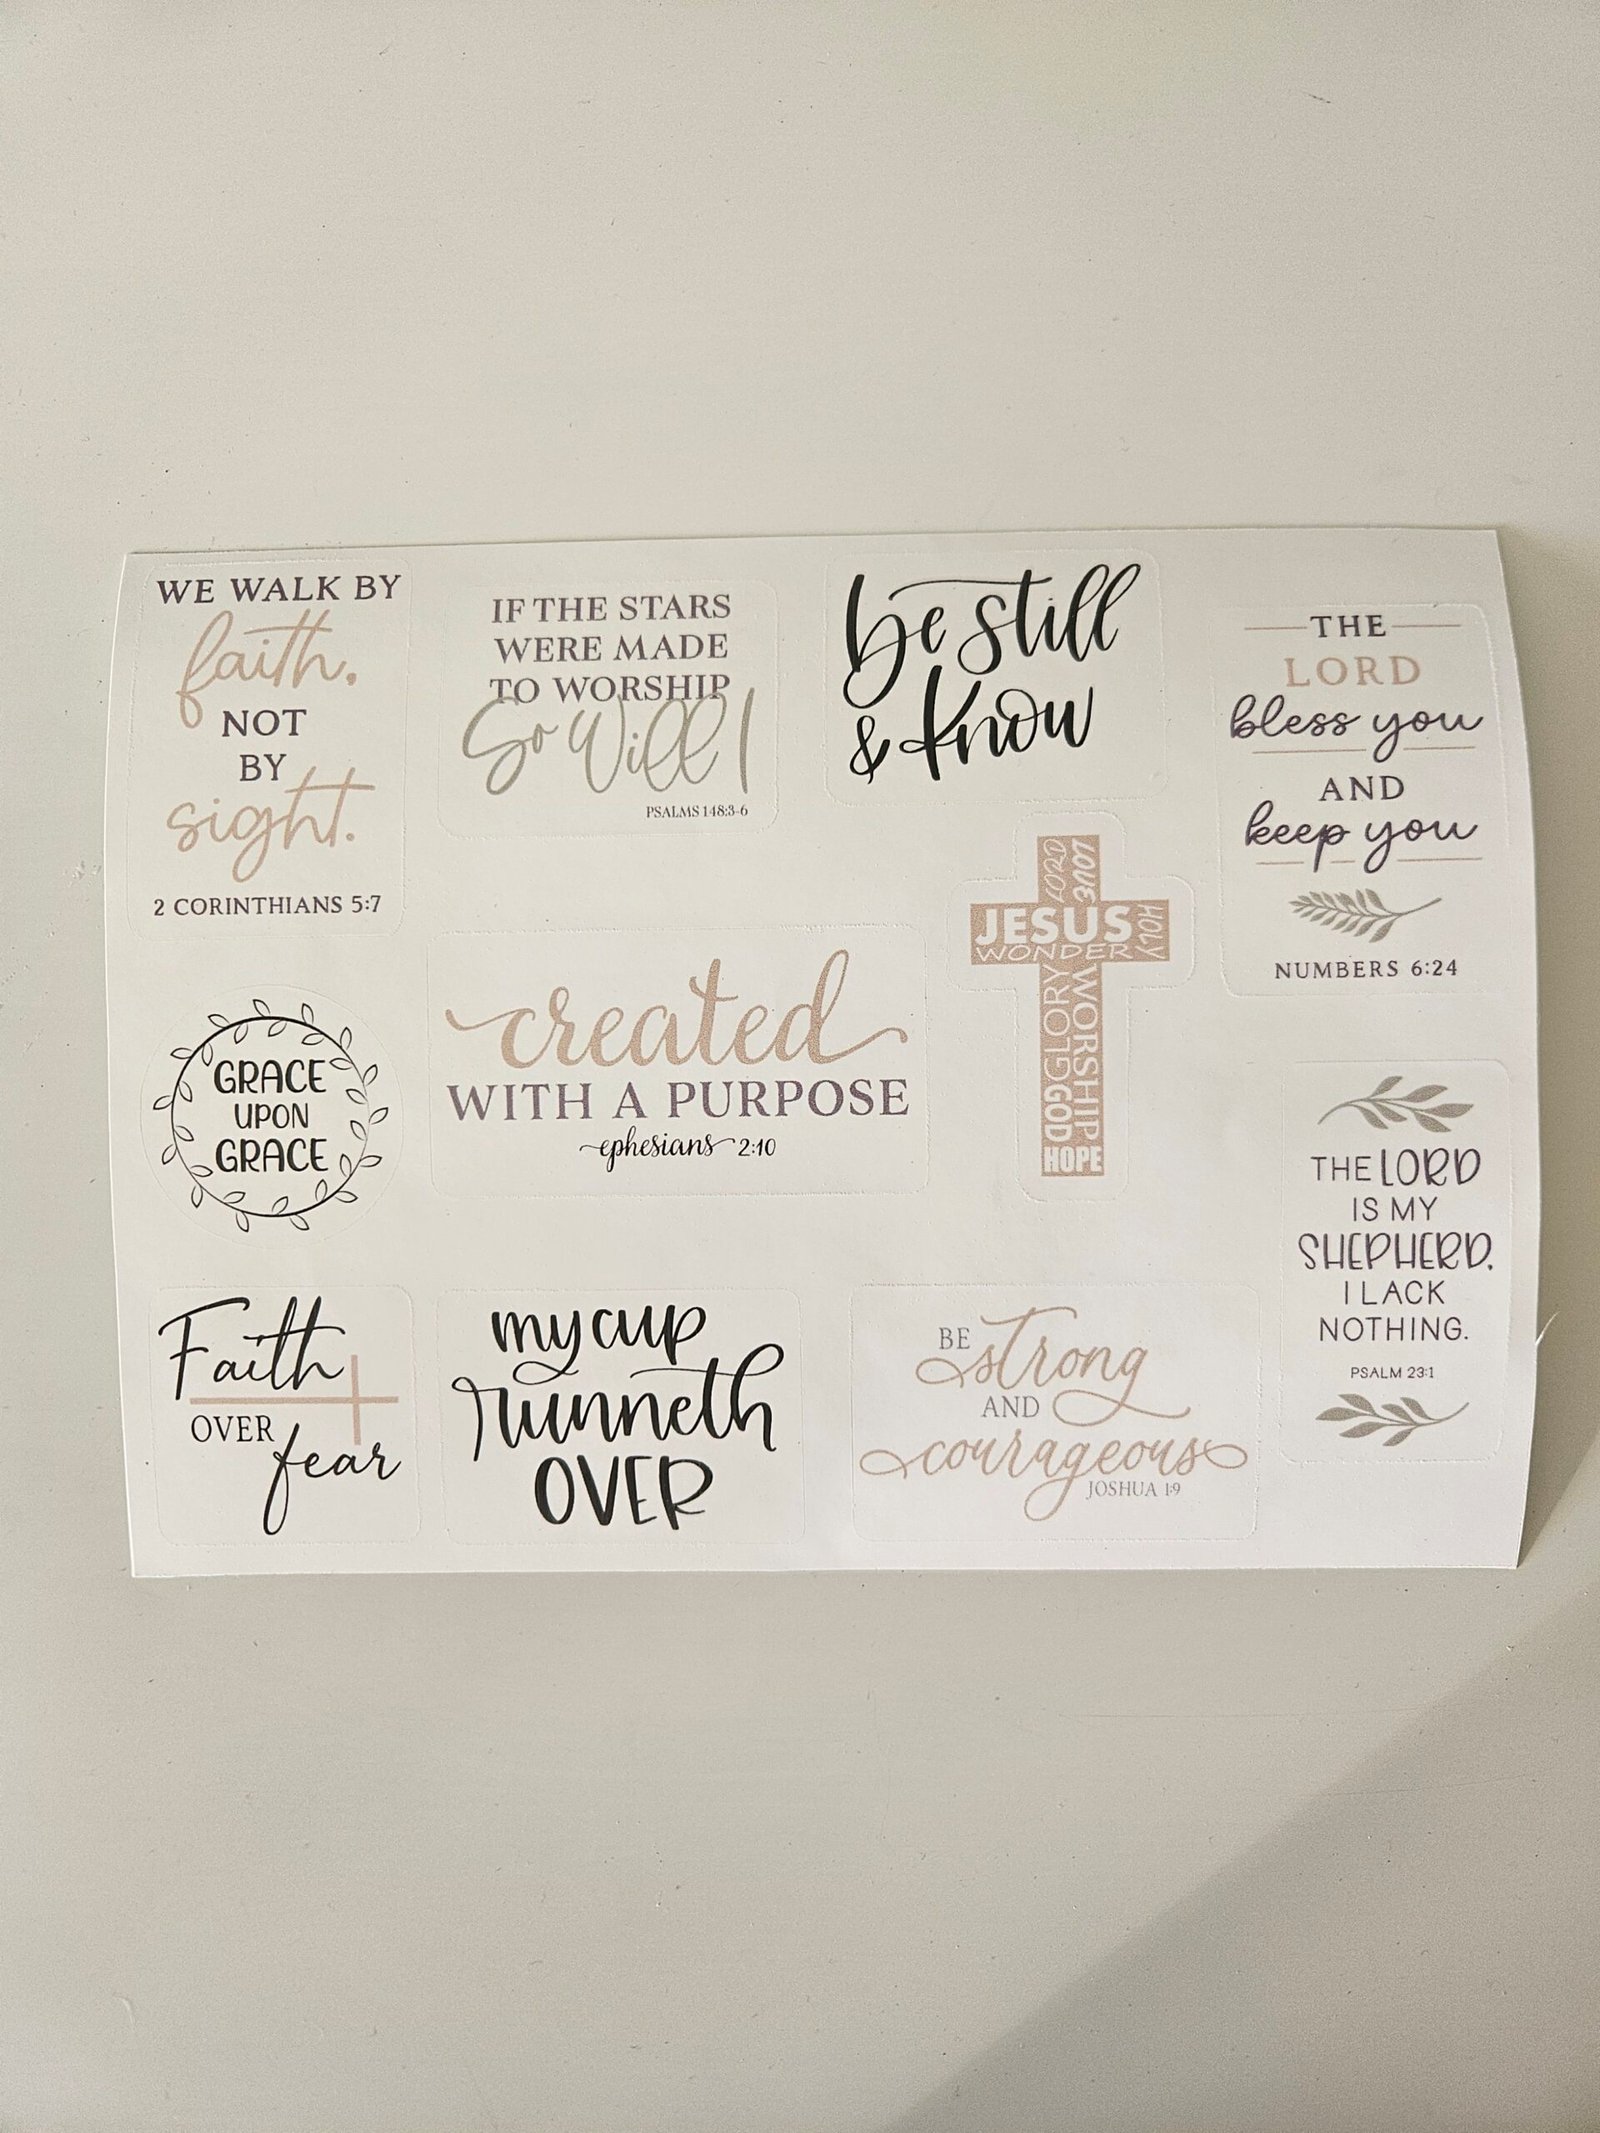 WE WALK BY
faith.
NOT
BY
sight.
2 CORINTHIANS 5:7
IF THE STARS
WERE MADE
TO WORSHIP
So Will I
PSALMS 148:3-6
be still
& know
THE
LORD
bless you
AND
keep you
NUMBERS 6:24
GRACE
UPON
GRACE
created
WITH A PURPOSE
ephesians 2:10
LORD
LOVE
JESUS
HOLY
WONDER
GLORY
WORSHIP
GOD
HOPE
THE LORD
IS MY
SHEPHERD.
I LACK
NOTHING.
PSALM 23:1
Faith
OVER
fear
my cup
runneth
OVER
BE strong
AND
courageous
JOSHUA 1:9